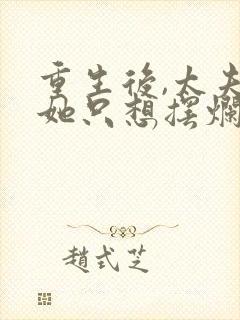 重生後,太夫
她只想摆爛
趙式芝